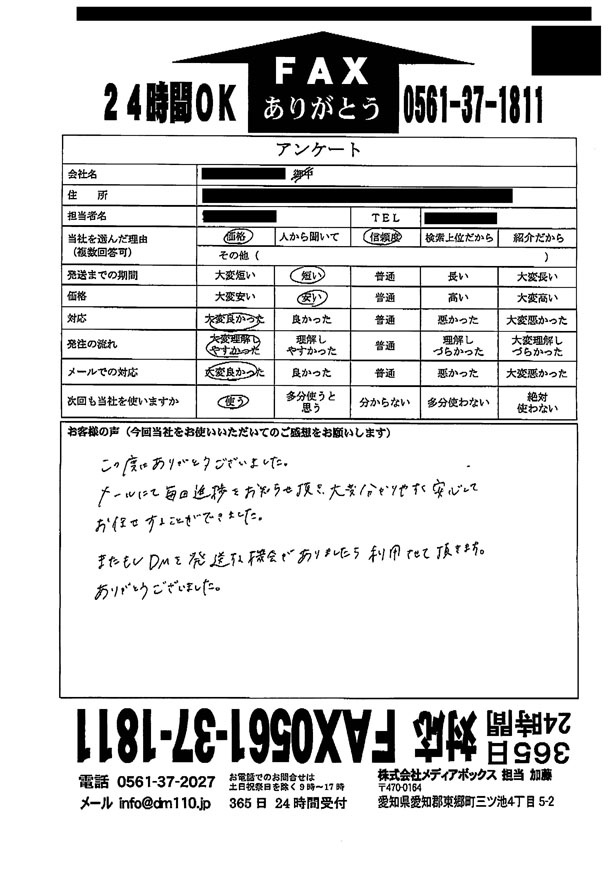 FAX
ありがとう
24時間OK
0561-37-1811
アンケート
会社名 御中
住 所
担当者名 TEL
当社を選んだ理由
(複数回答可)
価格 人から聞いて 信頼度 検索上位だから 紹介だから
その他 ( )
発送までの期間 大変短い 短い 普通 長い 大変長い
価格 大変安い 安い 普通 高い 大変高い
対応 大変良かった 良かった 普通 悪かった 大変悪かった
発注の流れ 大変理解しやすかった 理解しやすかった 普通 理解しづらかった 大変理解しづらかった
メールでの対応 大変良かった 良かった 普通 悪かった 大変悪かった
次回も当社を使いますか 使う 多分使うと思う 分からない 多分使わない 絶対使わない
お客様の声(今回当社をお使いいただいてのご感想をお願いします)
この度はありがとうございました。
メールにて毎日進捗をお知らせ頂き、大変分かりやすく安心して
お任せすることができました。
またもしDMを発送する機会がありましたら利用させて頂きます。
ありがとうございました。
365日24時間対応 FAX0561-37-1811
電話 0561-37-2027
お電話でのお問合せは
土日祝祭日を除く9時~17時
メール info@dm110.jp
365日 24時間受付
株式会社メディアボックス 担当 加藤
〒470-0164
愛知県愛知郡東郷町三ツ池4丁目 5-2